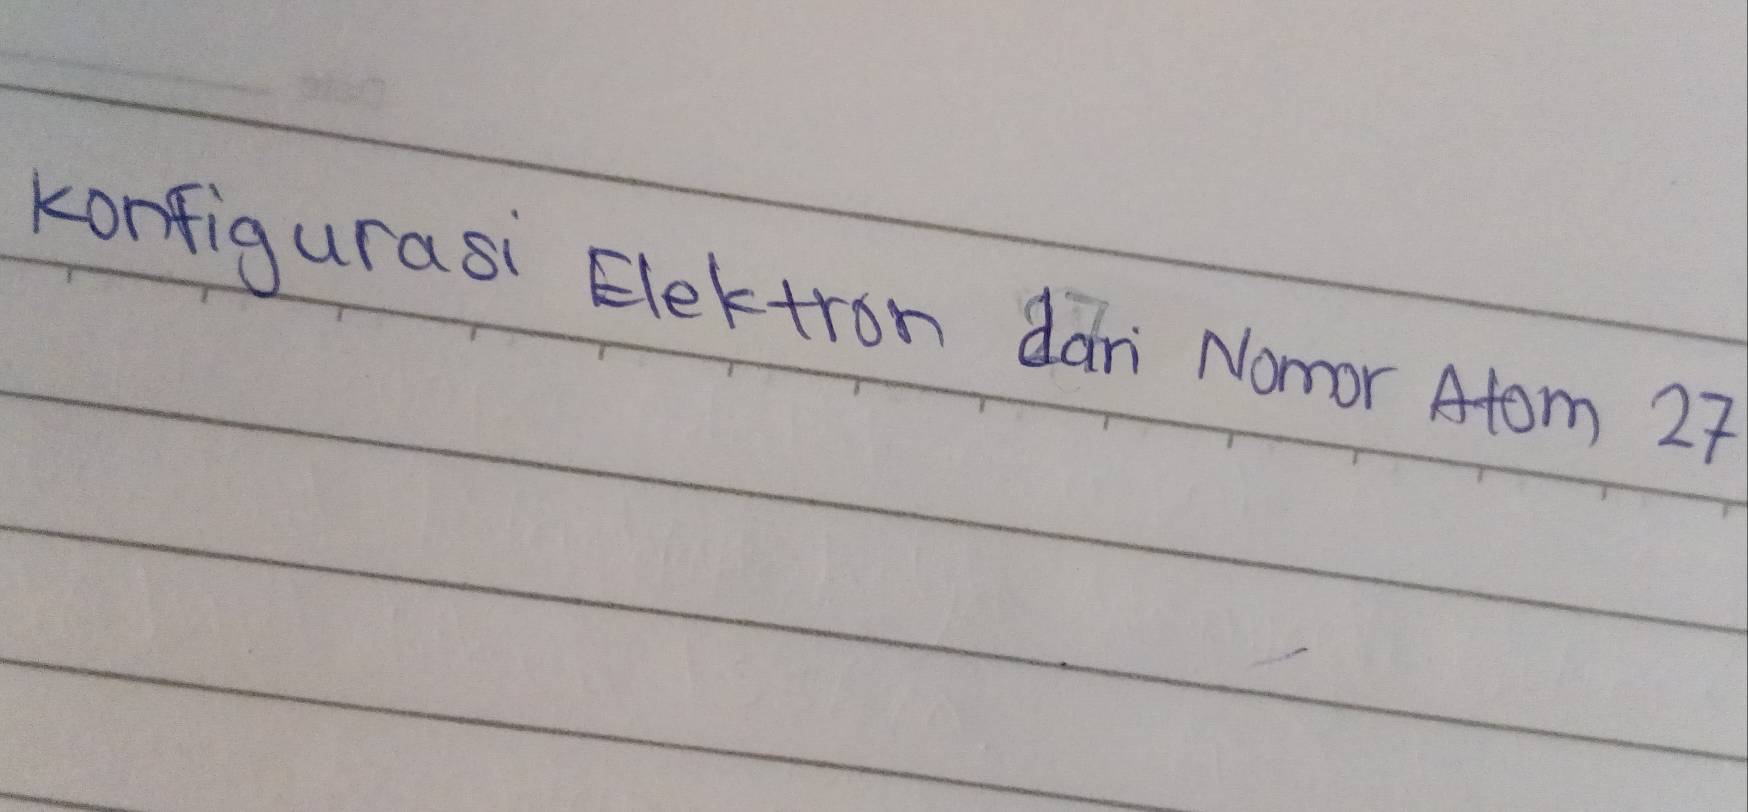 Konfigurasi Elektron dari Nomor Atom 27